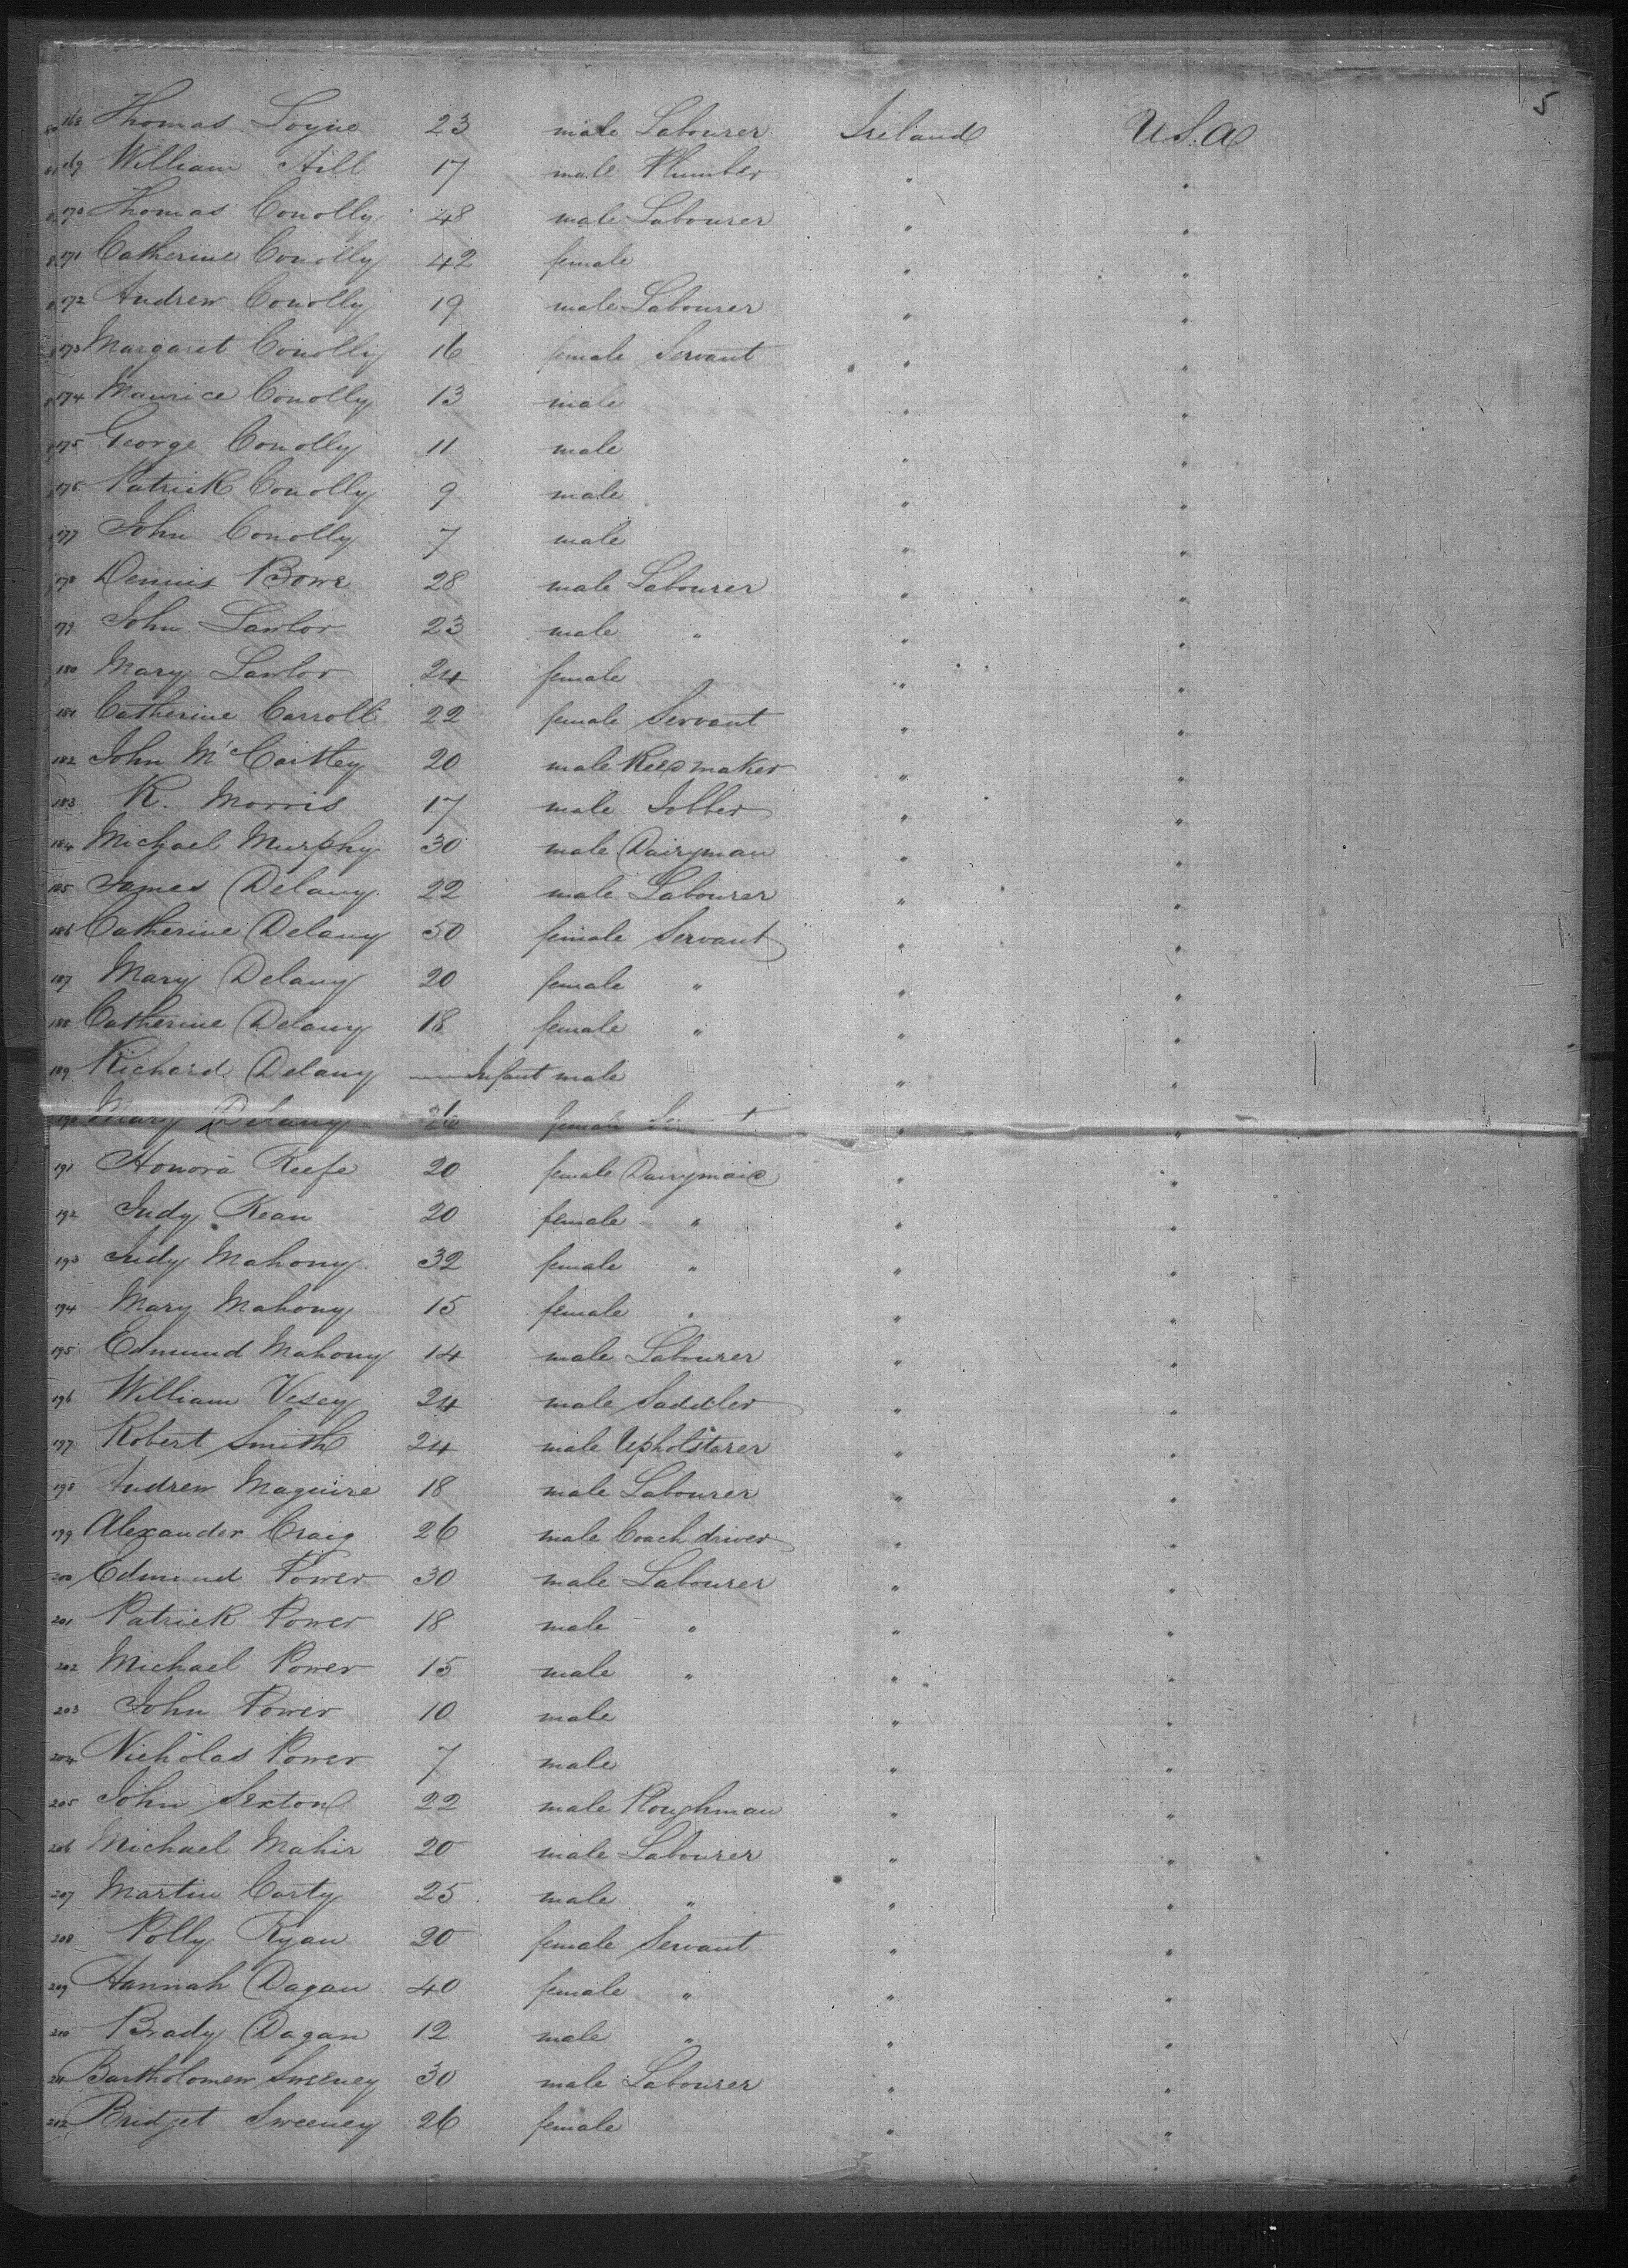 5
168 Thomas Loyne 23 male Labourer Ireland U.S.A
169 William Hill 17 male Plumber " "
170 Thomas Conolly 48 male Labourer " "
171 Catherine Conolly 42 female " "
172 Andrew Conolly 19 male Labourer " "
173 Margaret Conolly 16 female Servant " "
174 Maurice Conolly 13 male " "
175 George Conolly 11 male " "
176 Patrick Conolly 9 male " "
177 John Conolly 7 male " "
178 Dennis Bowe 28 male Labourer " "
179 John Lawlor 23 male " " "
180 Mary Lawlor 24 female " "
181 Catherine Carroll 22 female Servant " "
182 John McCartley 20 male Reed maker " "
183 K. Morris 17 male Jobber " "
184 Michael Murphy 30 male Dairyman " "
185 James Delany 22 male Labourer " "
186 Catherine Delany 50 female Servant " "
187 Mary Delany 20 female " " "
188 Catherine Delany 18 female " " "
189 Richard Delany Infant male " "
190 Mary Delany female " "
191 Honora Keefe 20 female Dairymaid " "
192 Judy Kean 20 female " " "
193 Judy Mahony 32 female " " "
194 Mary Mahony 15 female " " "
195 Edmund Mahony 14 male Labourer " "
196 William Vesey 24 male Saddler " "
197 Robert Smith 24 male Upholstarer " "
198 Andrew Maguire 18 male Labourer " "
199 Alexander Craig 26 male Coach driver " "
200 Edmund Power 30 male Labourer " "
201 Patrick Power 18 male " " "
202 Michael Power 15 male " " "
203 John Power 10 male " "
204 Nicholas Power 7 male " "
205 John Sexton 22 male Ploughman " "
206 Michael Mahir 20 male Labourer " "
207 Martin Carty 25 male " " "
208 Polly Ryan 20 female Servant " "
209 Hannah Dagan 40 female " " "
210 Brady Dagan 12 male " " "
211 Bartholomew Sweeney 30 male Labourer " "
212 Bridget Sweeney 26 female " "